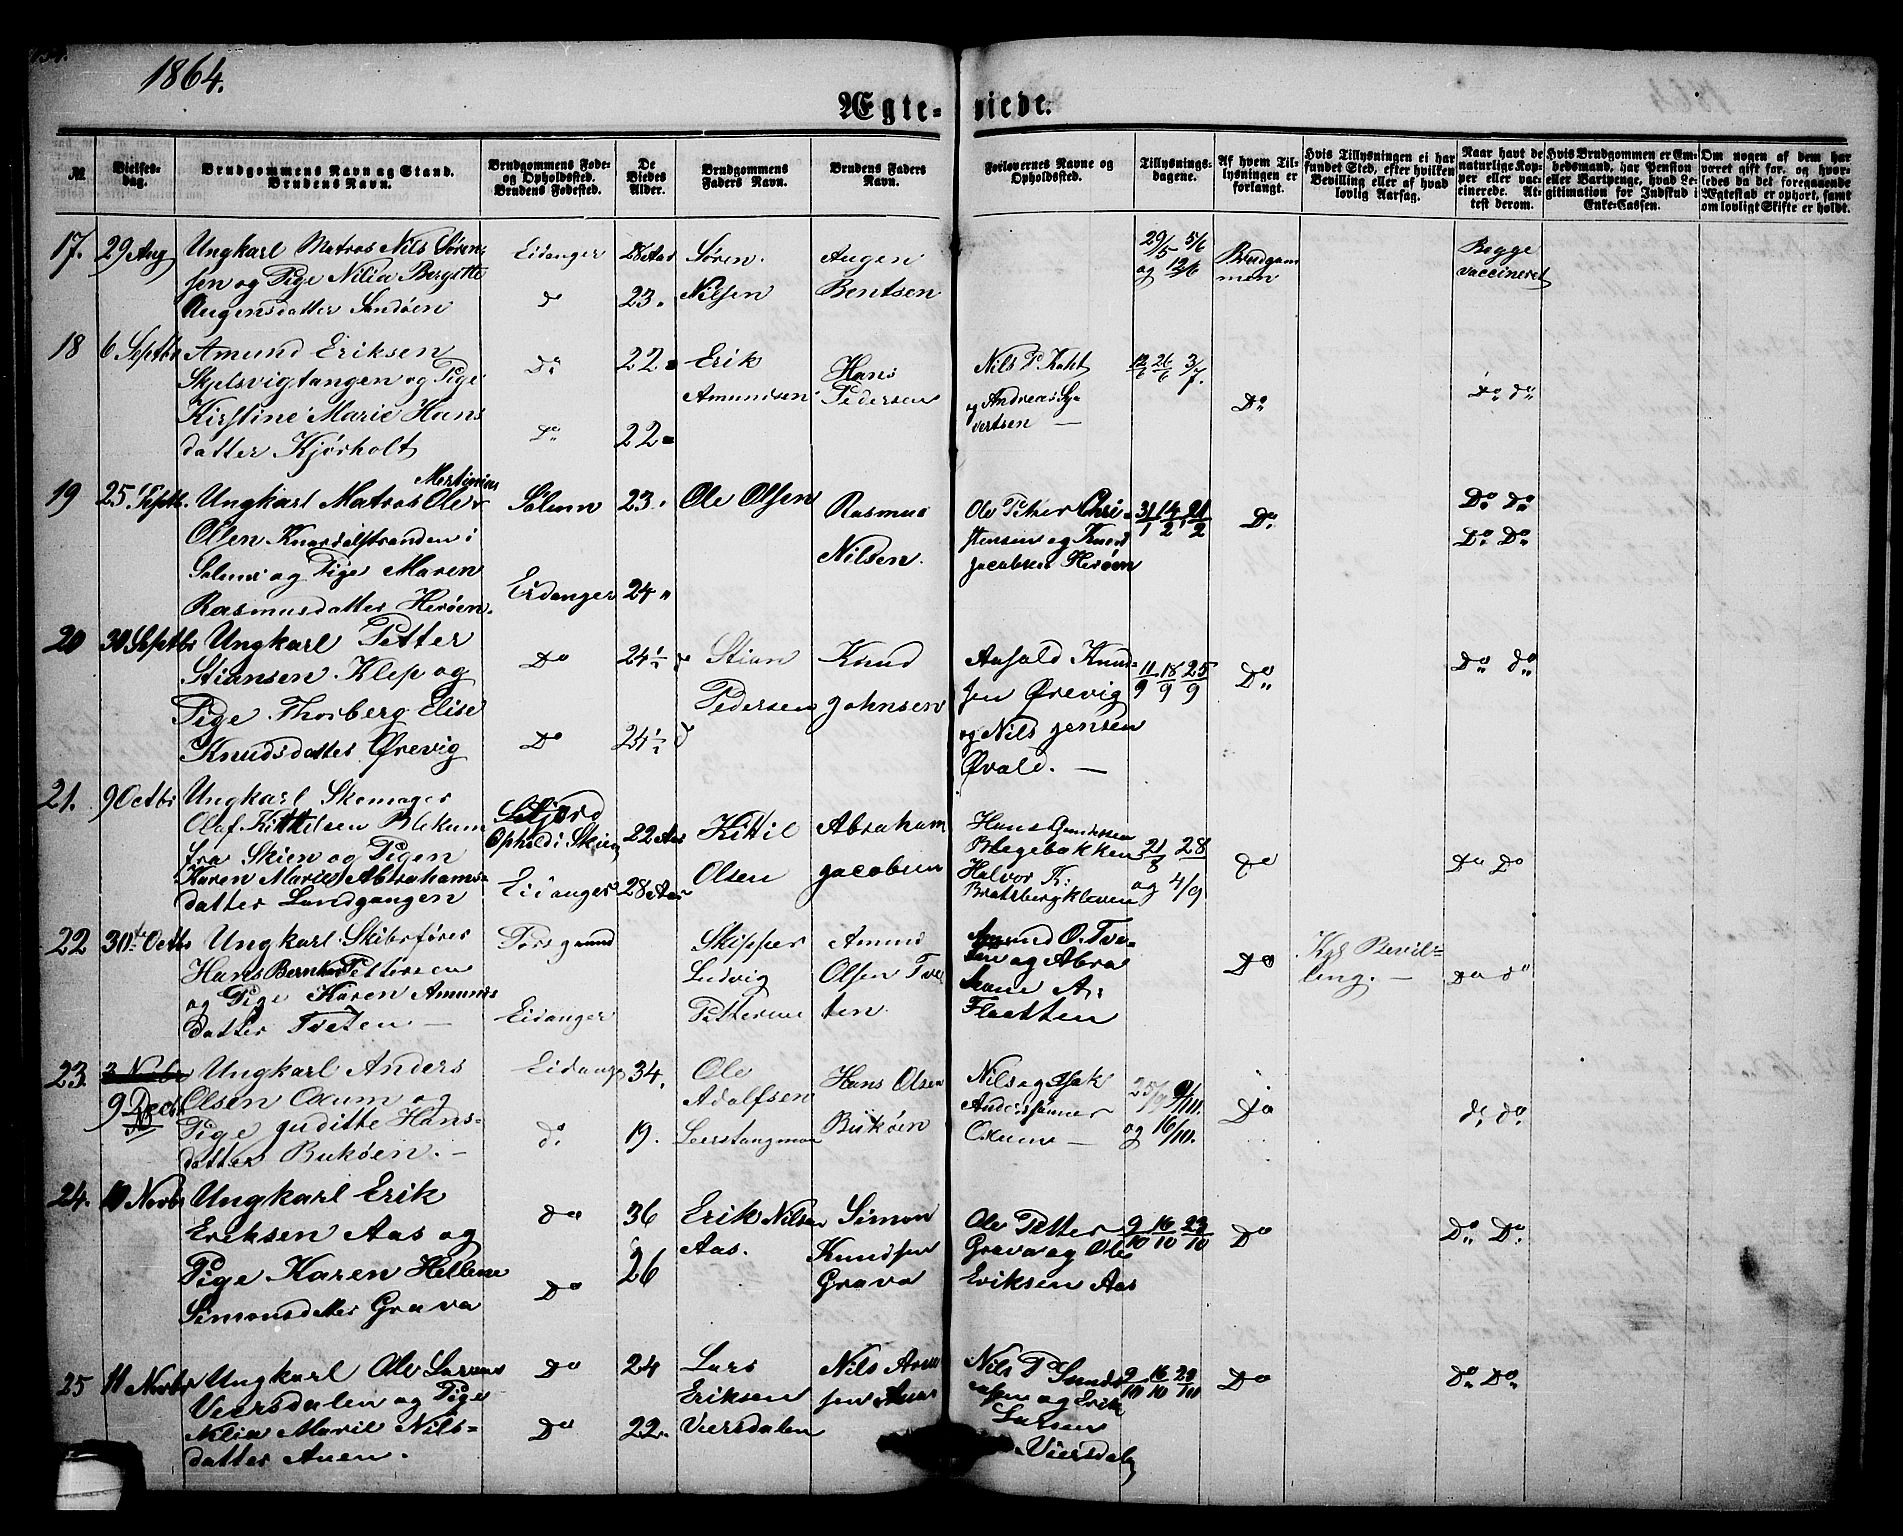 1864.
Ægte-viede.
№
Vielses-
dag.
Brudgommens Navn og Stand.
Brudens Navn.
Brudgommens Føde-
og Opholdssted.
Brudens Fødested.
De
Viedes
Alder.
Brudgommens
Faders Navn.
Brudens Faders
Navn.
Forlovernes Navne og
Opholdssted.
Tillysnings-
dagene.
Af hvem Til-
lysningen er
forlangt.
Hvis Tillysningen ei har
fundet Sted, efter hvilken
Bevilling eller af hvad
lovlig Aarsag.
Naar havt de
naturlige Kop-
per eller vac-
cinerede. At-
test derom.
Hvis Brudgommen er Em-
bedsmand, har Pension
eller Vartpenge, hvad Le-
gitimation for Indskud i
Enke-Cassen.
Om nogen af dem har
været gift før, og hvor-
ledes da det foregaaende
Ægtestad er ophørt, samt
om lovligt Skifte er holdt.
17. 29 Aug
Ungkarl Matros Nils Søren-
sen og Pige Nilia Bergitte
Augensdatter Sandøen
Eidanger
do
28 Aar
23.
Søren
Nilsen
Augen
Bentsen
29/5 5/6
og 12/6
Brudgom
men
Begge
vaccineret
18 6 Septbr
Amund Eriksen
Skjelsvigtangen og Pige
Kirstine Marie Hans
datter Kjørholt
Do
Do
22
22
Erik
Amundsen
Hans
Pedersen
Nils P.
og Andreas Sy-
vertsen —
12/6 26/6 3/7.
Do
Do do
19 25. Septbr.
Martinius
Ungkarl Matros Ole
Olsen Knardalstranden i
Solum og Pige Maren
Rasmusdatter Herøen.
Solum
Eidanger
23.
24 "
Ole Olsen
Rasmus
Nilsen.
Ole Peter Chri-
stensen og Knud
Jacobsen Herøen
31/1 14/2 21/2
Do
Do Do
Do Do
20 30 Septbr
Ungkarl Petter
Stiansen Klep og
Pige Thorberg Elise
Knudsdatter Ørevig
Do
Do
24½
24½
Stian
Pedersen
Knud
Johnsen
Knud-
sen Ørevig
og Nils Jensen
Øvald. —
11/9 18/9 25/9
Do
Do do
21. 9 Octbr
Ungkarl Skomager
Olaf Kittilsen Blekum
fra Skien og Pigen
Karen Marie Abrahams-
datter Landgangen
Opholdi Skien
Eidanger
22 Aar
28 Aar
Kittil
Olsen
Abraham
Jacobsen
Hans Gundersen
Bøgebakken
Halvor K:
Bratsbergkleven
21/8 28
og 4/9
do
Do Do
22 30te Octbr
Ungkarl Skibsfører
Hans Pettersen
og Pige Karen Amunds
datter Tveten —
Porsgrund
Eidanger
Skipper
Ludvig
Pettersen
Amund
Olsen Tve
ten
Amund O. Tve-
ten og Abra
ham A.
Do
Kgl Bevil-
ling. —
Do do
23. 3 Novbr
9 Decb
Ungkarl Anders
Olsen Oxum og
Pige Juditte Hans-
datter Bukøen. —
Eidanger
do.
34.
19.
Ole
Adolfsen
Hans Olsen
Bukøen
Nils og Isak
Anderssønner
Oxum —
25/9 9/10.
og 16/10.
Do
do do.
24. 10 Novbr
Ungkarl Erik
Eriksen Aas og
Pige Karen Hellene
Simonsdatter Grava
do
Do
36
26
Erik Nilsen
Aas.
Simon
Knudsen
Grava
Ole Petter
Grava og Ole
Eriksen Aas
9/10 16/10 23/10
Do
Do Do.
25 11 Novbr
Ungkarl Ole Larsen
Veiersdalen og Pige
Nilia Marie Nils-
datter Auen.
Do
Do
24
22.
Lars
Eriksen
Viersdalen
Nils Arne
sen Auen
Nils P.
og Erik
Larsen
Viersdal
9/10 16/10 23/10
Do
Do Do